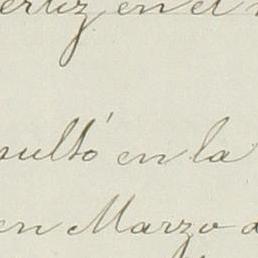 ertiz en el
sultó en la
en Marzo